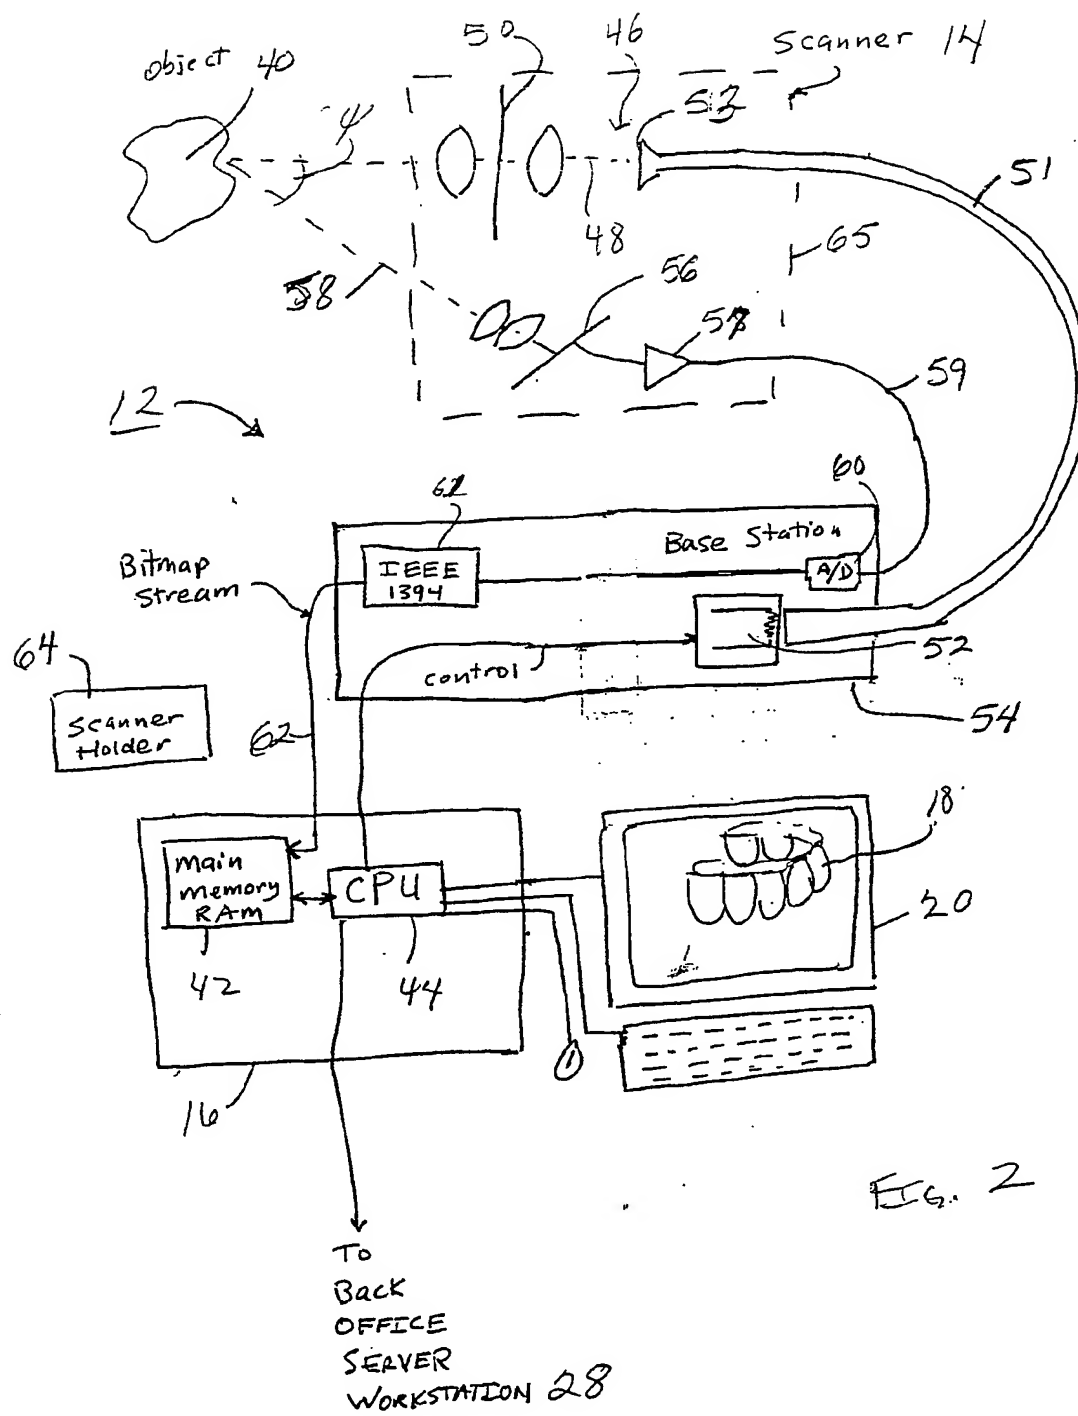 50
46
Scanner 14
object 40
53
51
48
65
58
56
57
59
12
61
60
Base Station
Bitmap
Stream
IEEE
1394
A/D
64
52
control
Scanner
Holder
62
54
18
Main
Memory
RAM
CPU
20
42
44
16
FIG. 2
To
Back
OFFICE
SERVER
WORKSTATION 28